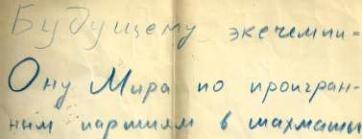 Будущему эксчемпи-
Ону Мира по проигран-
ным партиям в шахматы